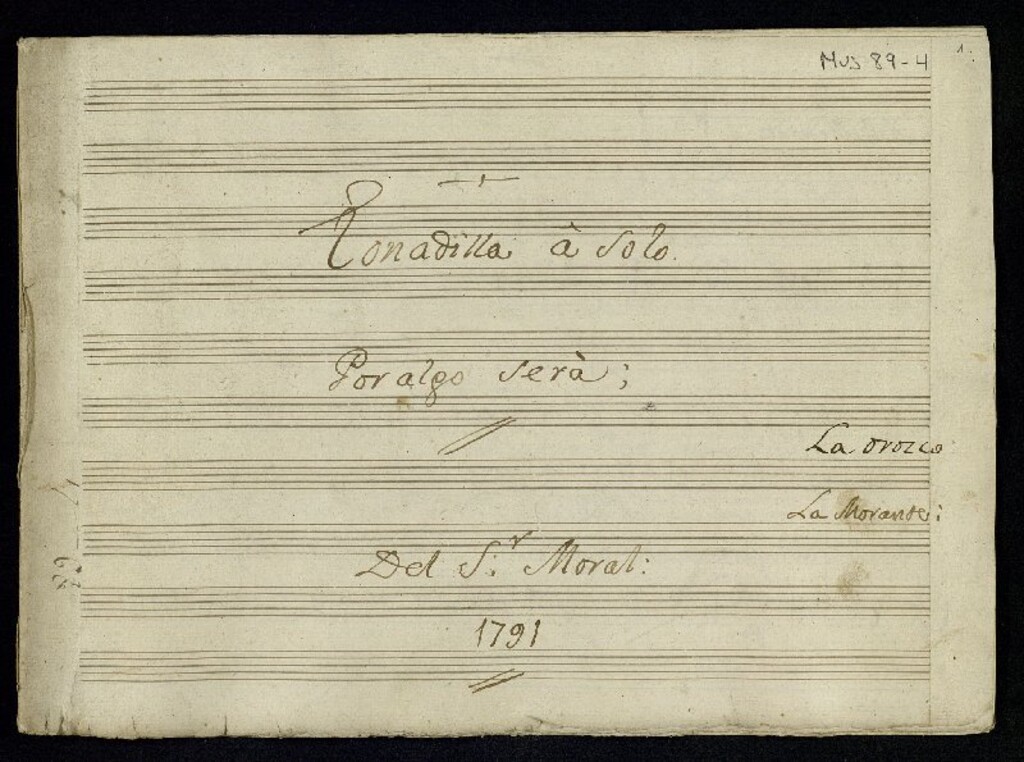 Mus 89-4
1.
Tonadilla à solo.
Por algo serà;
La Orozco
La Morante:
Del S.r Moral:
1791